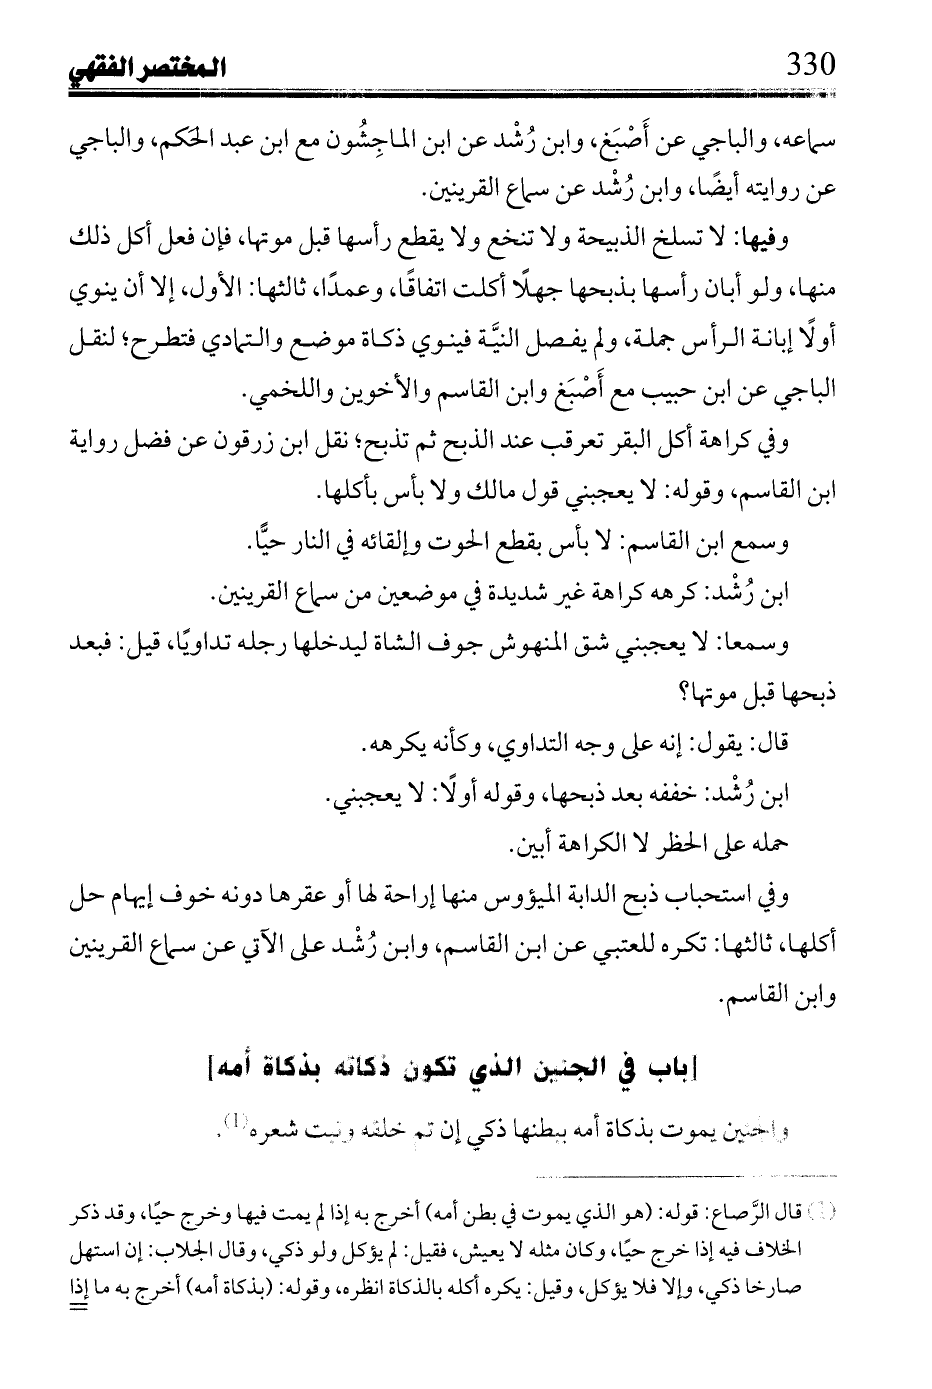 330
المختصر الفقهي
سماعه، والباجي عن أَصْبَغ، وابن رُشْد عن ابن الماجِشُون مع ابن عبد الحَكم، والباجي
عن روايته أيضًا، وابن رُشْد عن سماع القرينين.
وفيها: لا تسلخ الذبيحة ولا تنخع ولا يقطع رأسها قبل موتها، فإن فعل أكل ذلك
منها، ولو أبان رأسها بذبحها جهلًا أكلت اتفاقًا، وعمدًا، ثالثها: الأول، إلا أن ينوي
أولًا إبانة الرأس جملة، ولم يفصل النيَّة فينوي ذكاة موضع والتمادي فتطرح؛ لنقل
الباجي عن ابن حبيب مع أَصْبَغ وابن القاسم والأخوين واللخمي.
وفي كراهة أكل البقر تعرقب عند الذبح ثم تذبح؛ نقل ابن زرقون عن فضل رواية
ابن القاسم، وقوله: لا يعجبني قول مالك ولا بأس بأكلها.
وسمع ابن القاسم: لا بأس بقطع الحوت وإلقائه في النار حيًّا.
ابن رُشْد: كرهه كراهة غير شديدة في موضعين من سماع القرينين.
وسمعا: لا يعجبني شق المنهوش جوف الشاة ليدخلها رجله تداويًا، قيل: فبعد
ذبحها قبل موتها؟
قال: يقول: إنه على وجه التداوي، وكأنه يكرهه.
ابن رُشْد: خففه بعد ذبحها، وقوله أولًا: لا يعجبني.
حمله على الحظر لا الكراهة أبين.
وفي استحباب ذبح الدابة الميؤوس منها إراحة لها أو عقرها دونه خوف إيهام حل
أكلها، ثالثها: تكره للعتبي عن ابن القاسم، وابن رُشْد على الآتي عن سماع القرينين
وابن القاسم.
[باب في الجنين الذي تكون ذكاته بذكاة أمه]
والجنين يموت بذكاة أمه ببطنها ذكي إن تم خلقه ونبت شعره(1).
(1) قال الرَّصاع: قوله: (هو الذي يموت في بطن أمه) أخرج به إذا لم يمت فيها وخرج حيًّا، وقد ذكر
الخلاف فيه إذا خرج حيًّا، وكان مثله لا يعيش، فقيل: لم يؤكل ولو ذكي، وقال الجلاب: إن استهل
صارخا ذكي، وإلا فلا يؤكل، وقيل: يكره أكله بالذكاة انظره، وقوله: (بذكاة أمه) أخرج به ما إذا